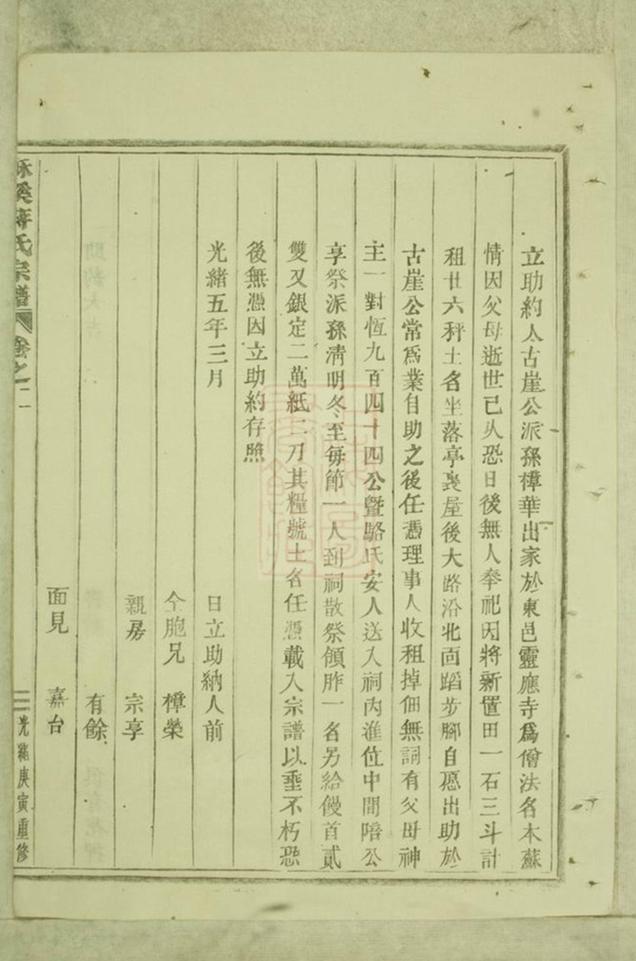 立助約人古崖公派孫樟華出家於東邑靈應寺爲僧法名本蘇
情因父母逝世已久恐日後無人奉祀因將新置田一石三斗計
租廿六秤土名坐落亭裏屋後大路沿北面踏步腳自愿出助於
古崖公常爲業自助之後任憑理事人收租掉佃無詞有父母神
主一對恆九百四十四公暨駱氏安人送入祠內進位中間陪公
享祭派孫清明冬至每節一人到祠散祭領胙一名另給饅首貳
雙又銀定二萬紙二刀其糧號土名任憑載入宗譜以垂不朽恐
後無憑因立助約存照
光緒五年三月 日立助納人前
仝胞兄 樟榮
親房 宗享
有餘
面見 嘉台
溪蔣氏宗譜 卷之二
光緒庚寅重修